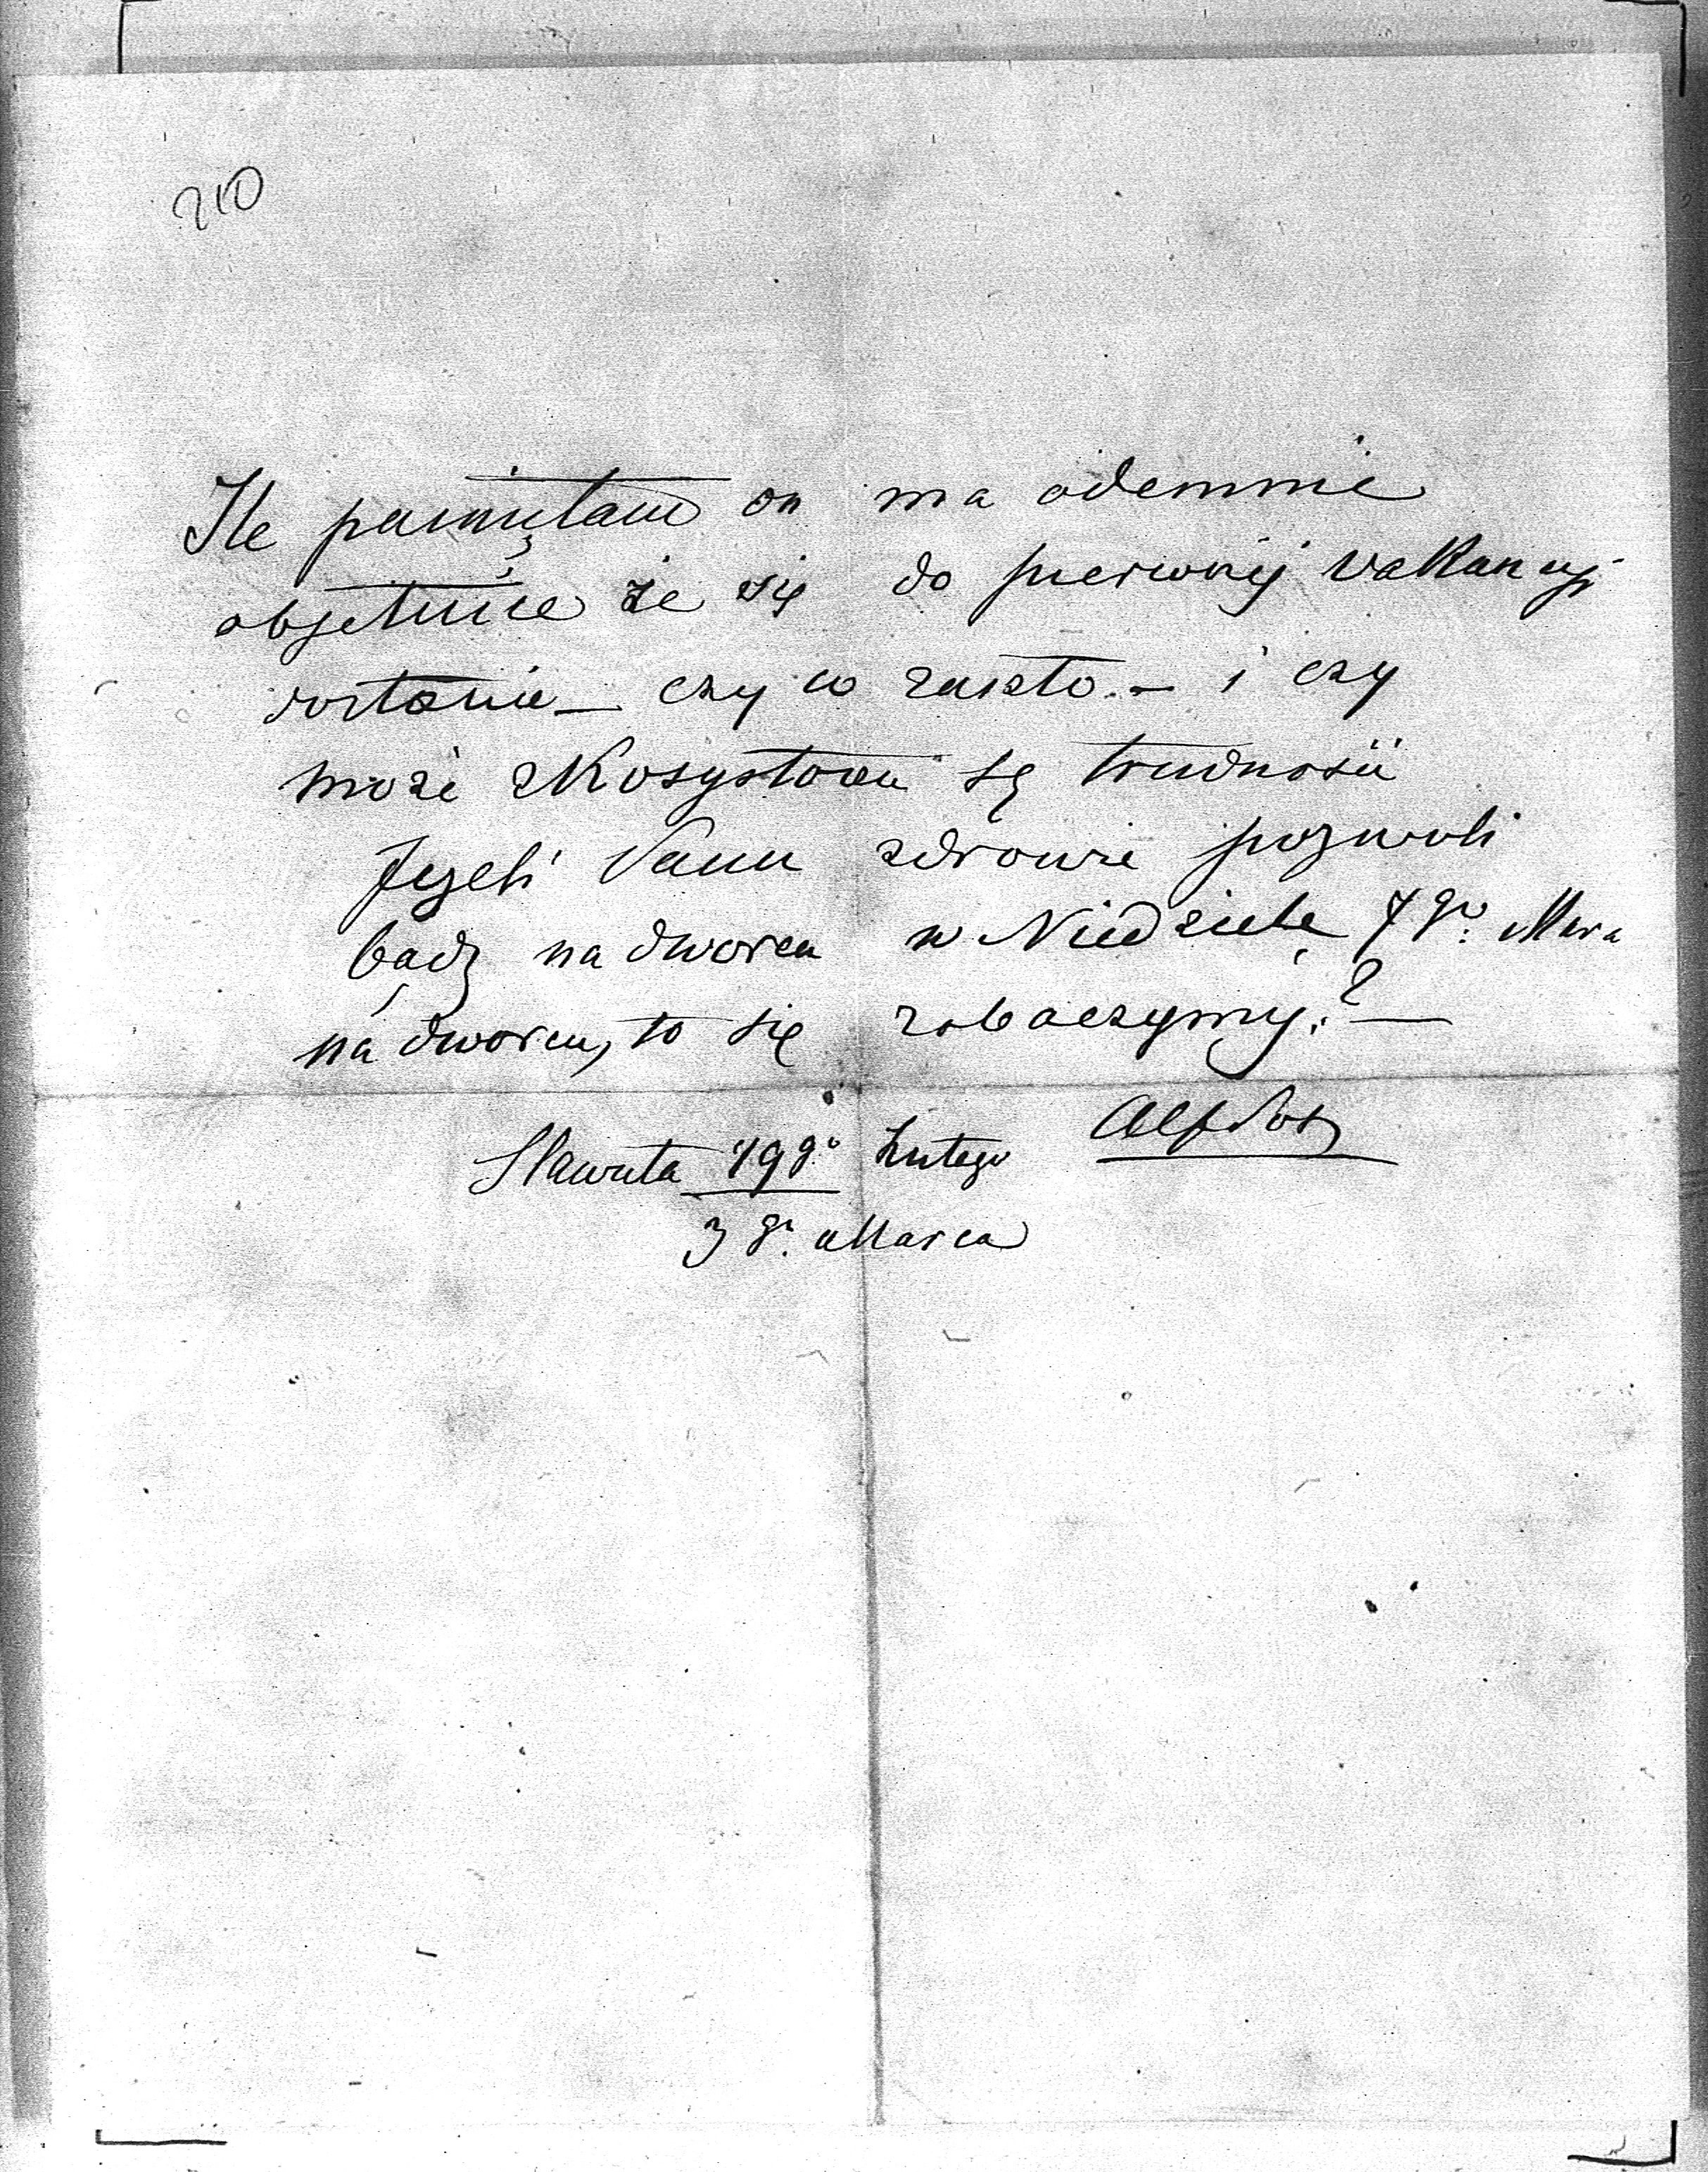 210
Ile pamiętam on ma odemnie
objetnice że się do pierwszej vakancyj
dostanie — czy co zaszło. — i czy
może z Kosystowu są trudności
Jeżeli Panu zdrowie pozwoli
bądz na dworcu w Niedzielę 7go. Marca
na dworcu, to się zobaczymy.? —
Sławuta 19go Lutego
3go. Marca